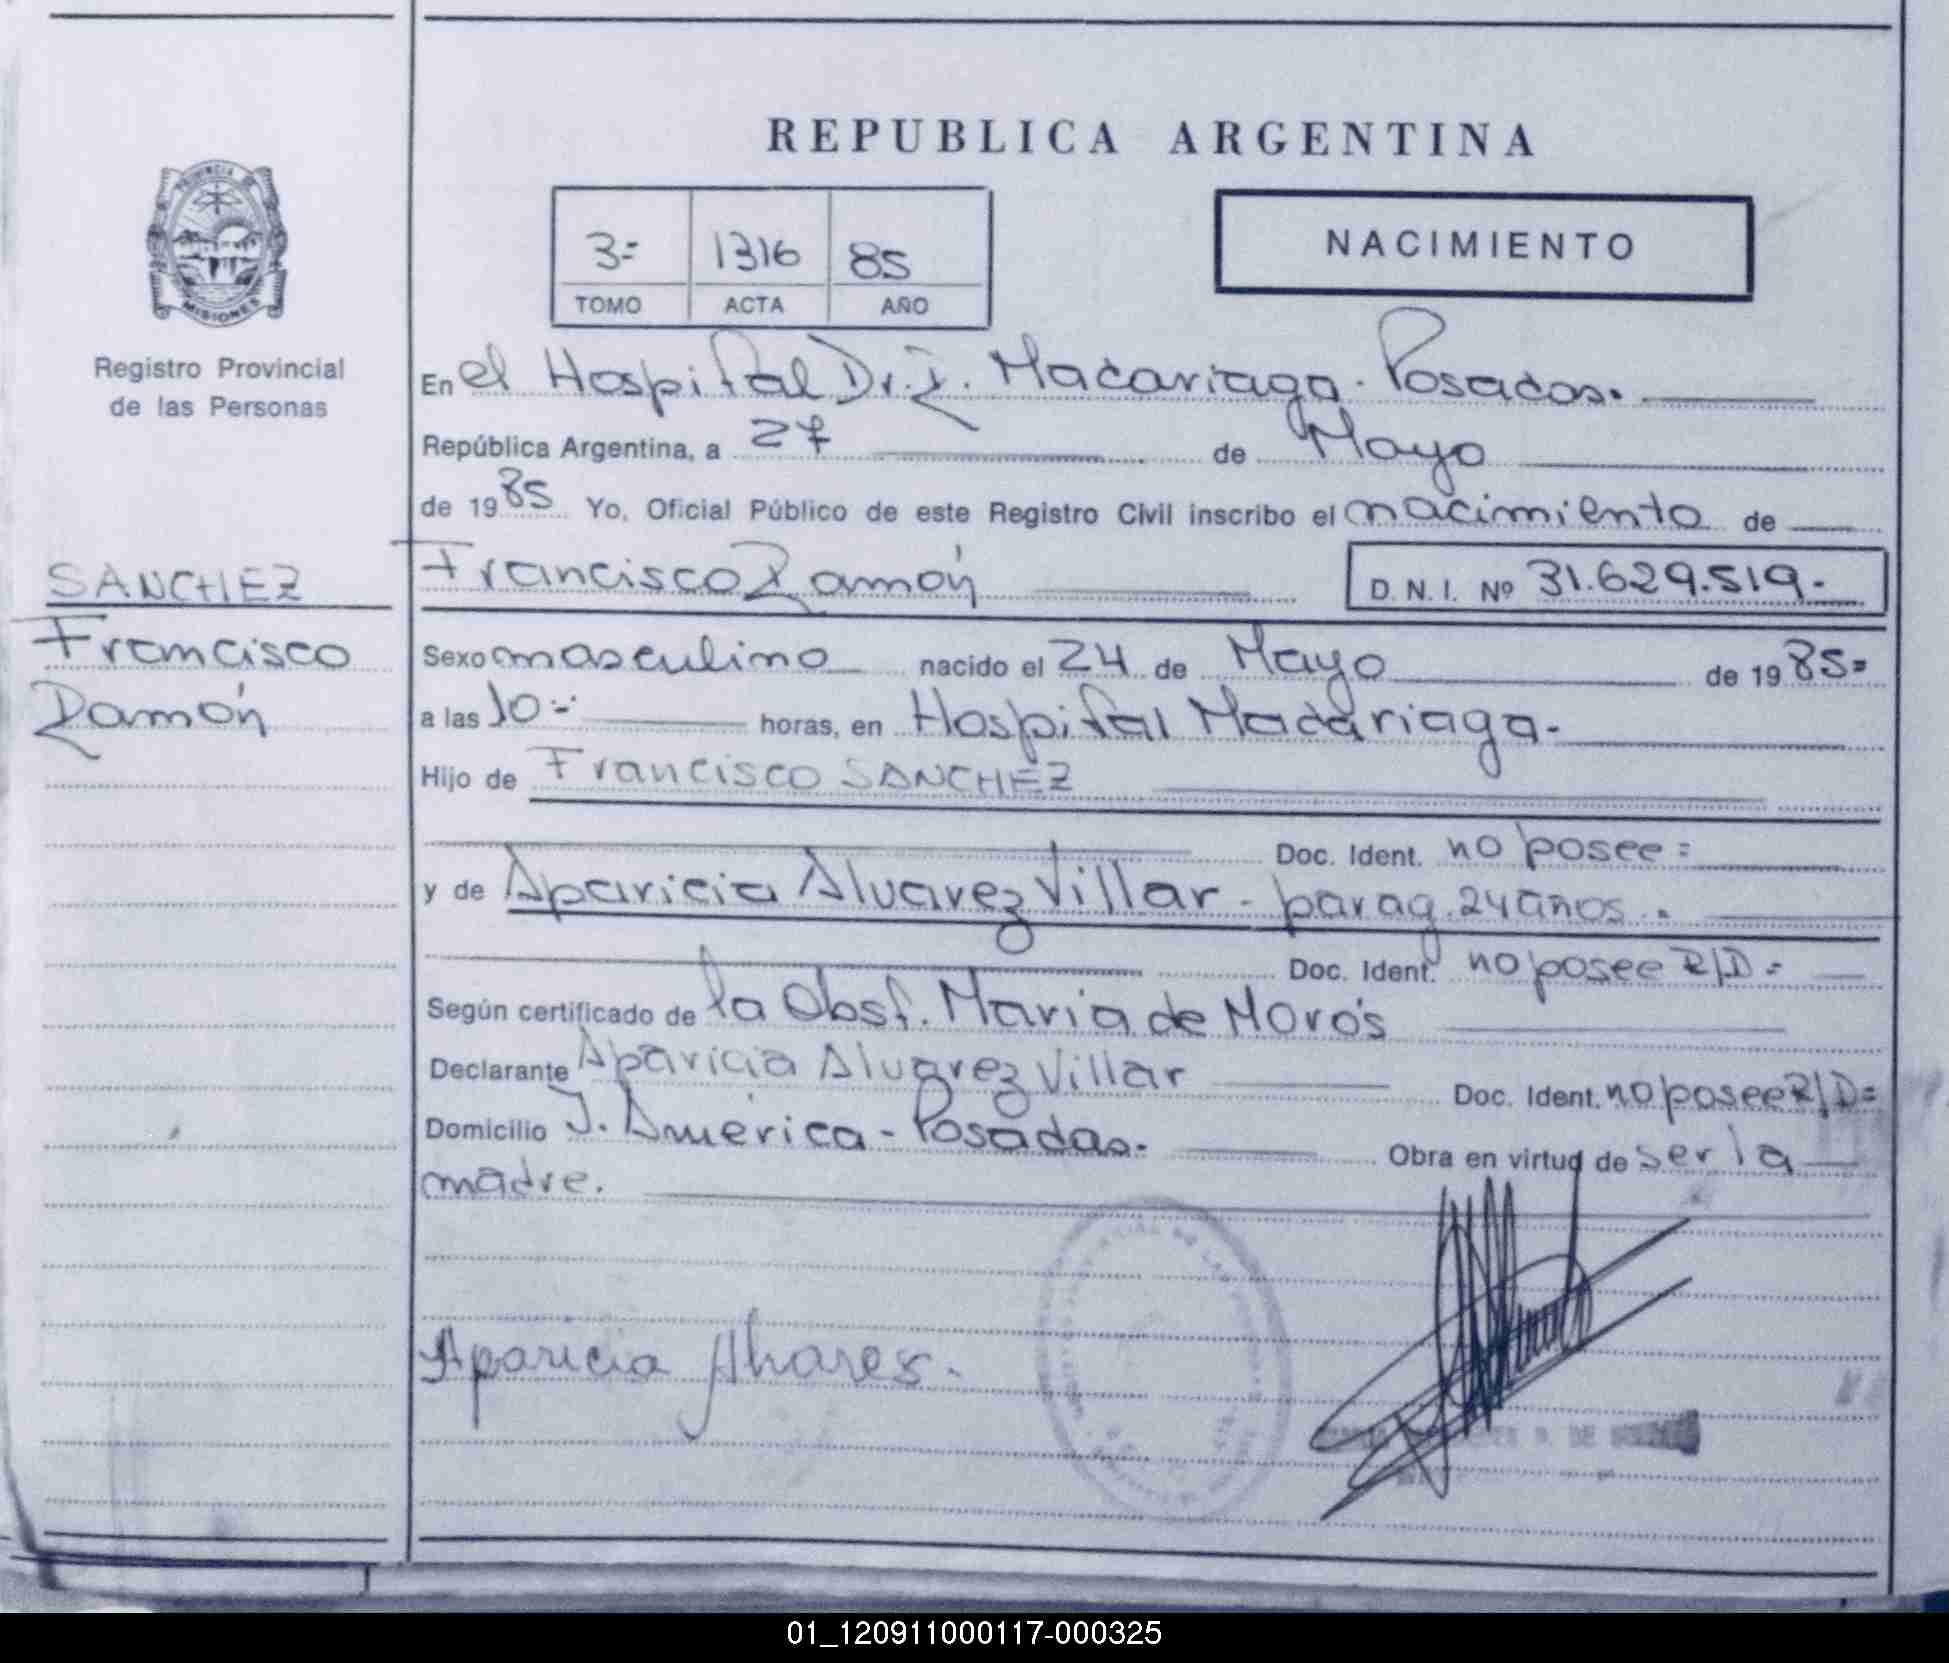 REPUBLICA ARGENTINA
PROVINCIA DE
MISIONES
Registro Provincial
de las Personas
3=
1316
85
TOMO
ACTA
AÑO
NACIMIENTO
En el Hospital Dr. R. Madariaga. Posadas.
República Argentina, a 27 de Mayo
de 1985 Yo, Oficial Público de este Registro Civil inscribo el nacimiento de
SANCHEZ
Francisco
Ramón
Francisco Ramón
D.N.I. Nº 31.629.519.-
Sexo masculino nacido el 24 de Mayo de 1985=
a las 10-: horas, en Hospital Madariaga.-
Hijo de Francisco SANCHEZ
Doc. Ident. no posee =
y de Aparicia Alvarez Villar - parag. 24 años.
Doc. Ident. no posee R/D =
Según certificado de la Obst. Maria de Moro's
Declarante Aparicia Alvarez Villar Doc. Ident. no posee R/D=
Domicilio I. América - Posadas. Obra en virtud de ser la
madre.
Aparicia Alvares.
01_120911000117-000325